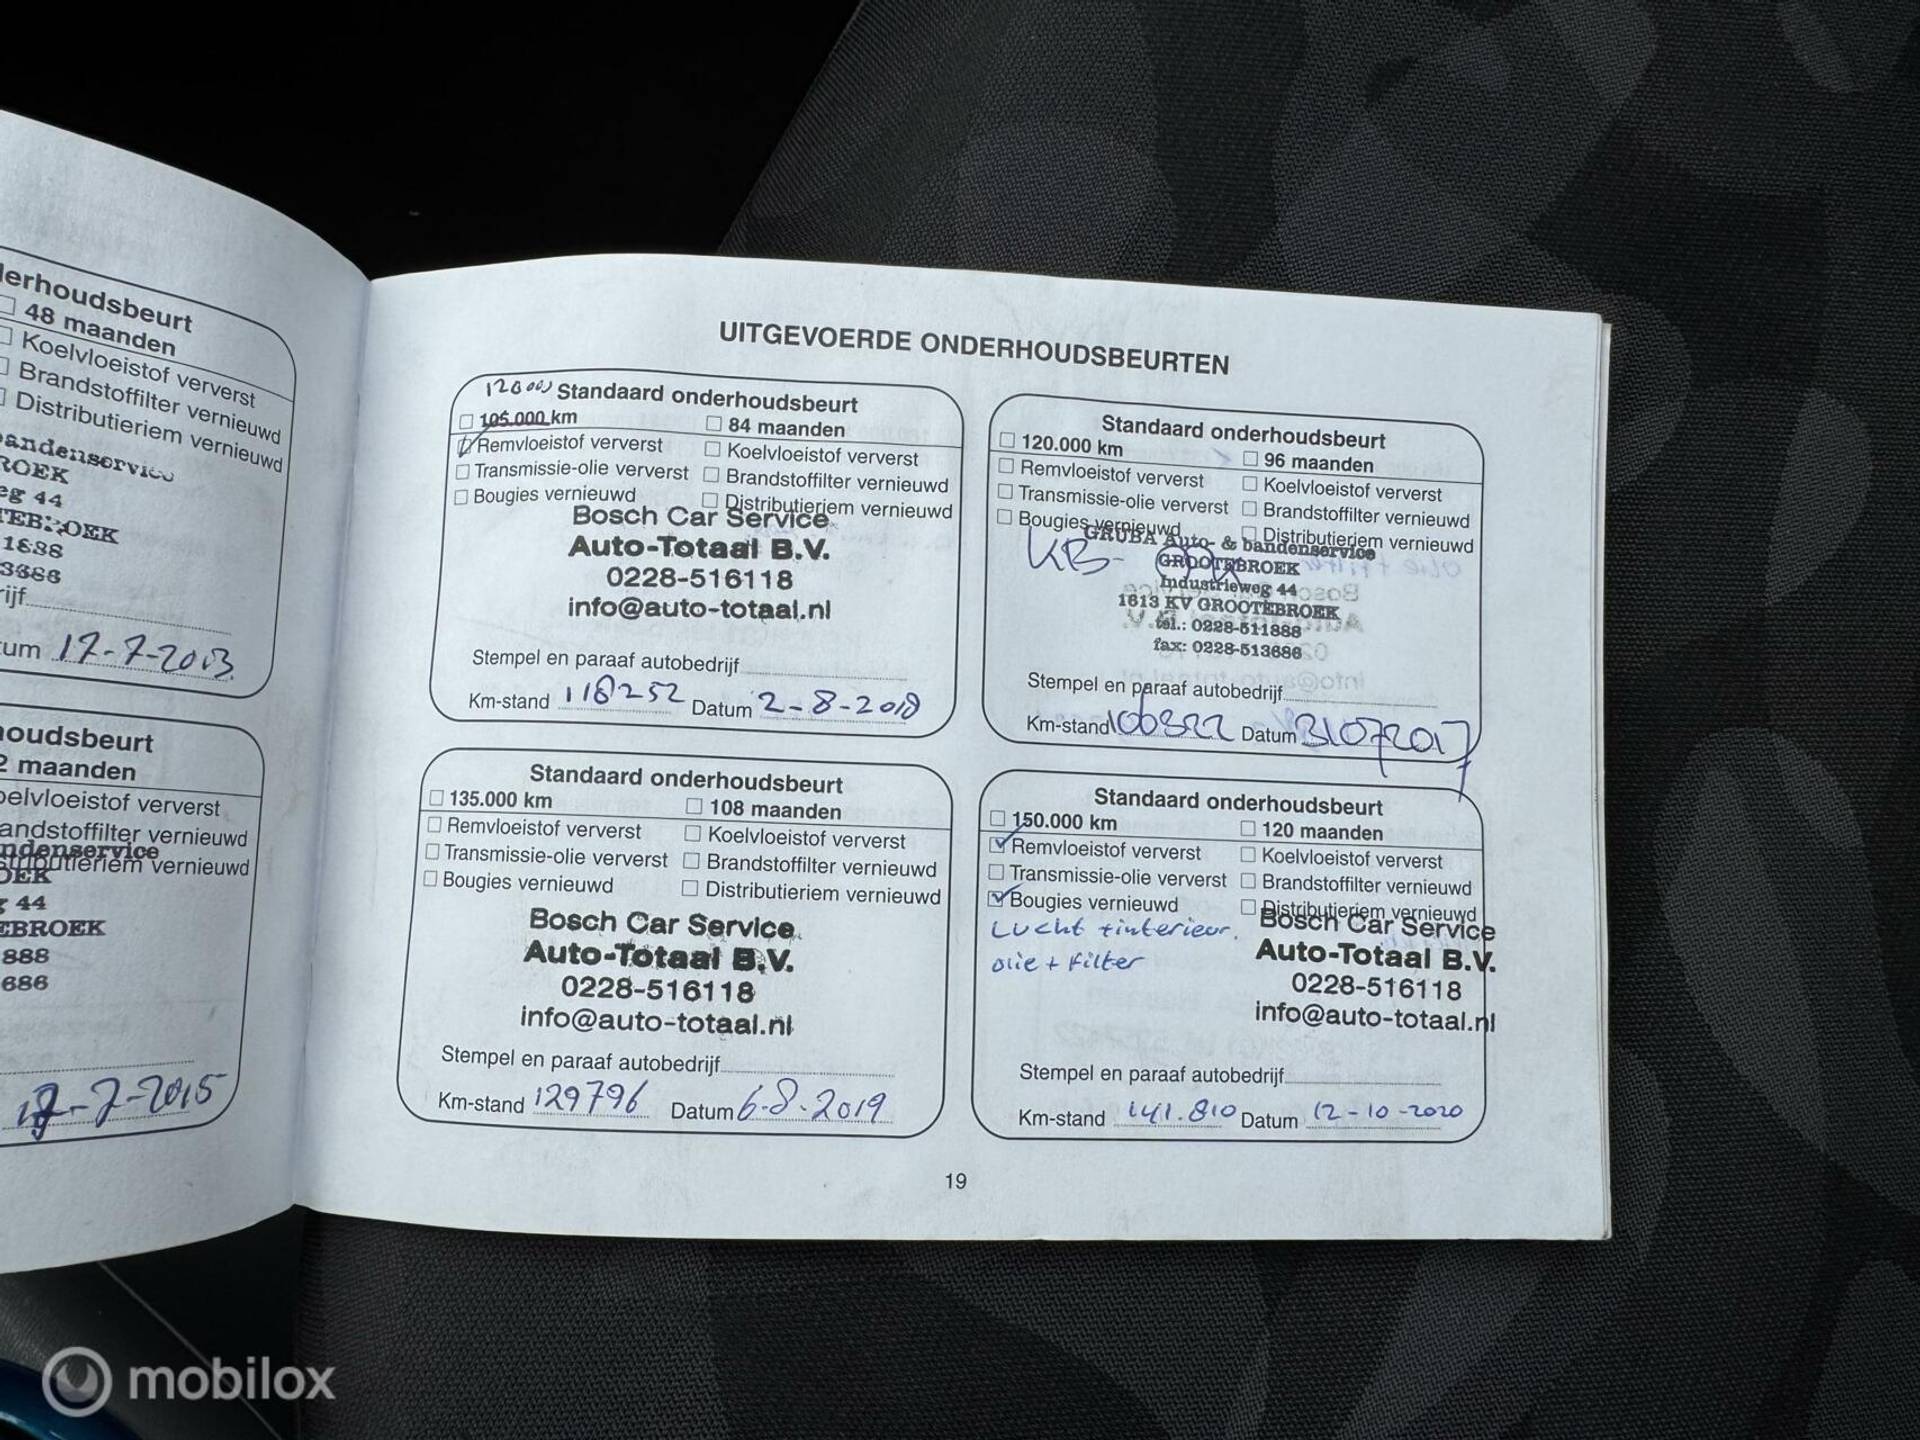 lerhoudsbeurt
48 maanden
Koelvloeistof ververst
Brandstoffilter vernieuwd
Distributieriem vernieuwd
bandenservice
ROEK
eg 44
TEBROEK
1888
3686
rijf
tum 17-7-2013
houdsbeurt
2 maanden
oelvloeistof ververst
andstoffilter vernieuwd
ndenservice
stributieriem vernieuwd
OEK
g 44
EBROEK
888
686
17-7-2015
UITGEVOERDE ONDERHOUDSBEURTEN
120000 Standaard onderhoudsbeurt
105.000 km
84 maanden
Remvloeistof ververst
Koelvloeistof ververst
Transmissie-olie ververst
Brandstoffilter vernieuwd
Bougies vernieuwd
Distributieriem vernieuwd
Bosch Car Service
Auto-Totaal B.V.
0228-516118
info@auto-totaal.nl
Stempel en paraaf autobedrijf
Km-stand 116252 Datum 2-8-2018
Standaard onderhoudsbeurt
120.000 km
96 maanden
Remvloeistof ververst
Koelvloeistof ververst
Transmissie-olie ververst
Brandstoffilter vernieuwd
Bougies vernieuwd
Distributieriem vernieuwd
KB-
GRUBA Auto- & bandenservice
GROOTEBROEK
Industrieweg 44
1613 KV GROOTEBROEK
tel.: 0228-511888
fax: 0228-513686
Stempel en paraaf autobedrijf
Km-stand 106322 Datum 31072017
Standaard onderhoudsbeurt
135.000 km
108 maanden
Remvloeistof ververst
Koelvloeistof ververst
Transmissie-olie ververst
Brandstoffilter vernieuwd
Bougies vernieuwd
Distributieriem vernieuwd
Bosch Car Service
Auto-Totaal B.V.
0228-516118
info@auto-totaal.nl
Stempel en paraaf autobedrijf
Km-stand 129796 Datum 6-8-2019
Standaard onderhoudsbeurt
150.000 km
120 maanden
Remvloeistof ververst
Koelvloeistof ververst
Transmissie-olie ververst
Brandstoffilter vernieuwd
Bougies vernieuwd
Distributieriem vernieuwd
Lucht + interieur.
olie + filter
Bosch Car Service
Auto-Totaal B.V.
0228-516118
info@auto-totaal.nl
Stempel en paraaf autobedrijf
Km-stand 141.810 Datum 12-10-2020
19
mobilox